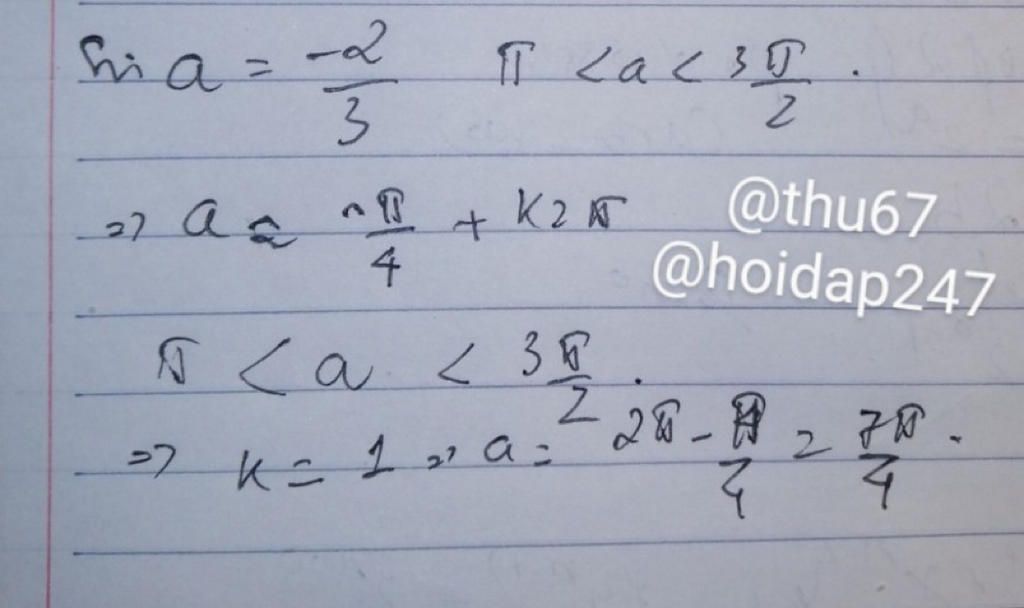 Sin a = -2/3 π < a < 3π/2 .
=> a = -π/4 + k2π
@thu67
@hoidap247
π < a < 3π/2 .
=> k = 1 => a = 2π - π/4 = 7π/4 .